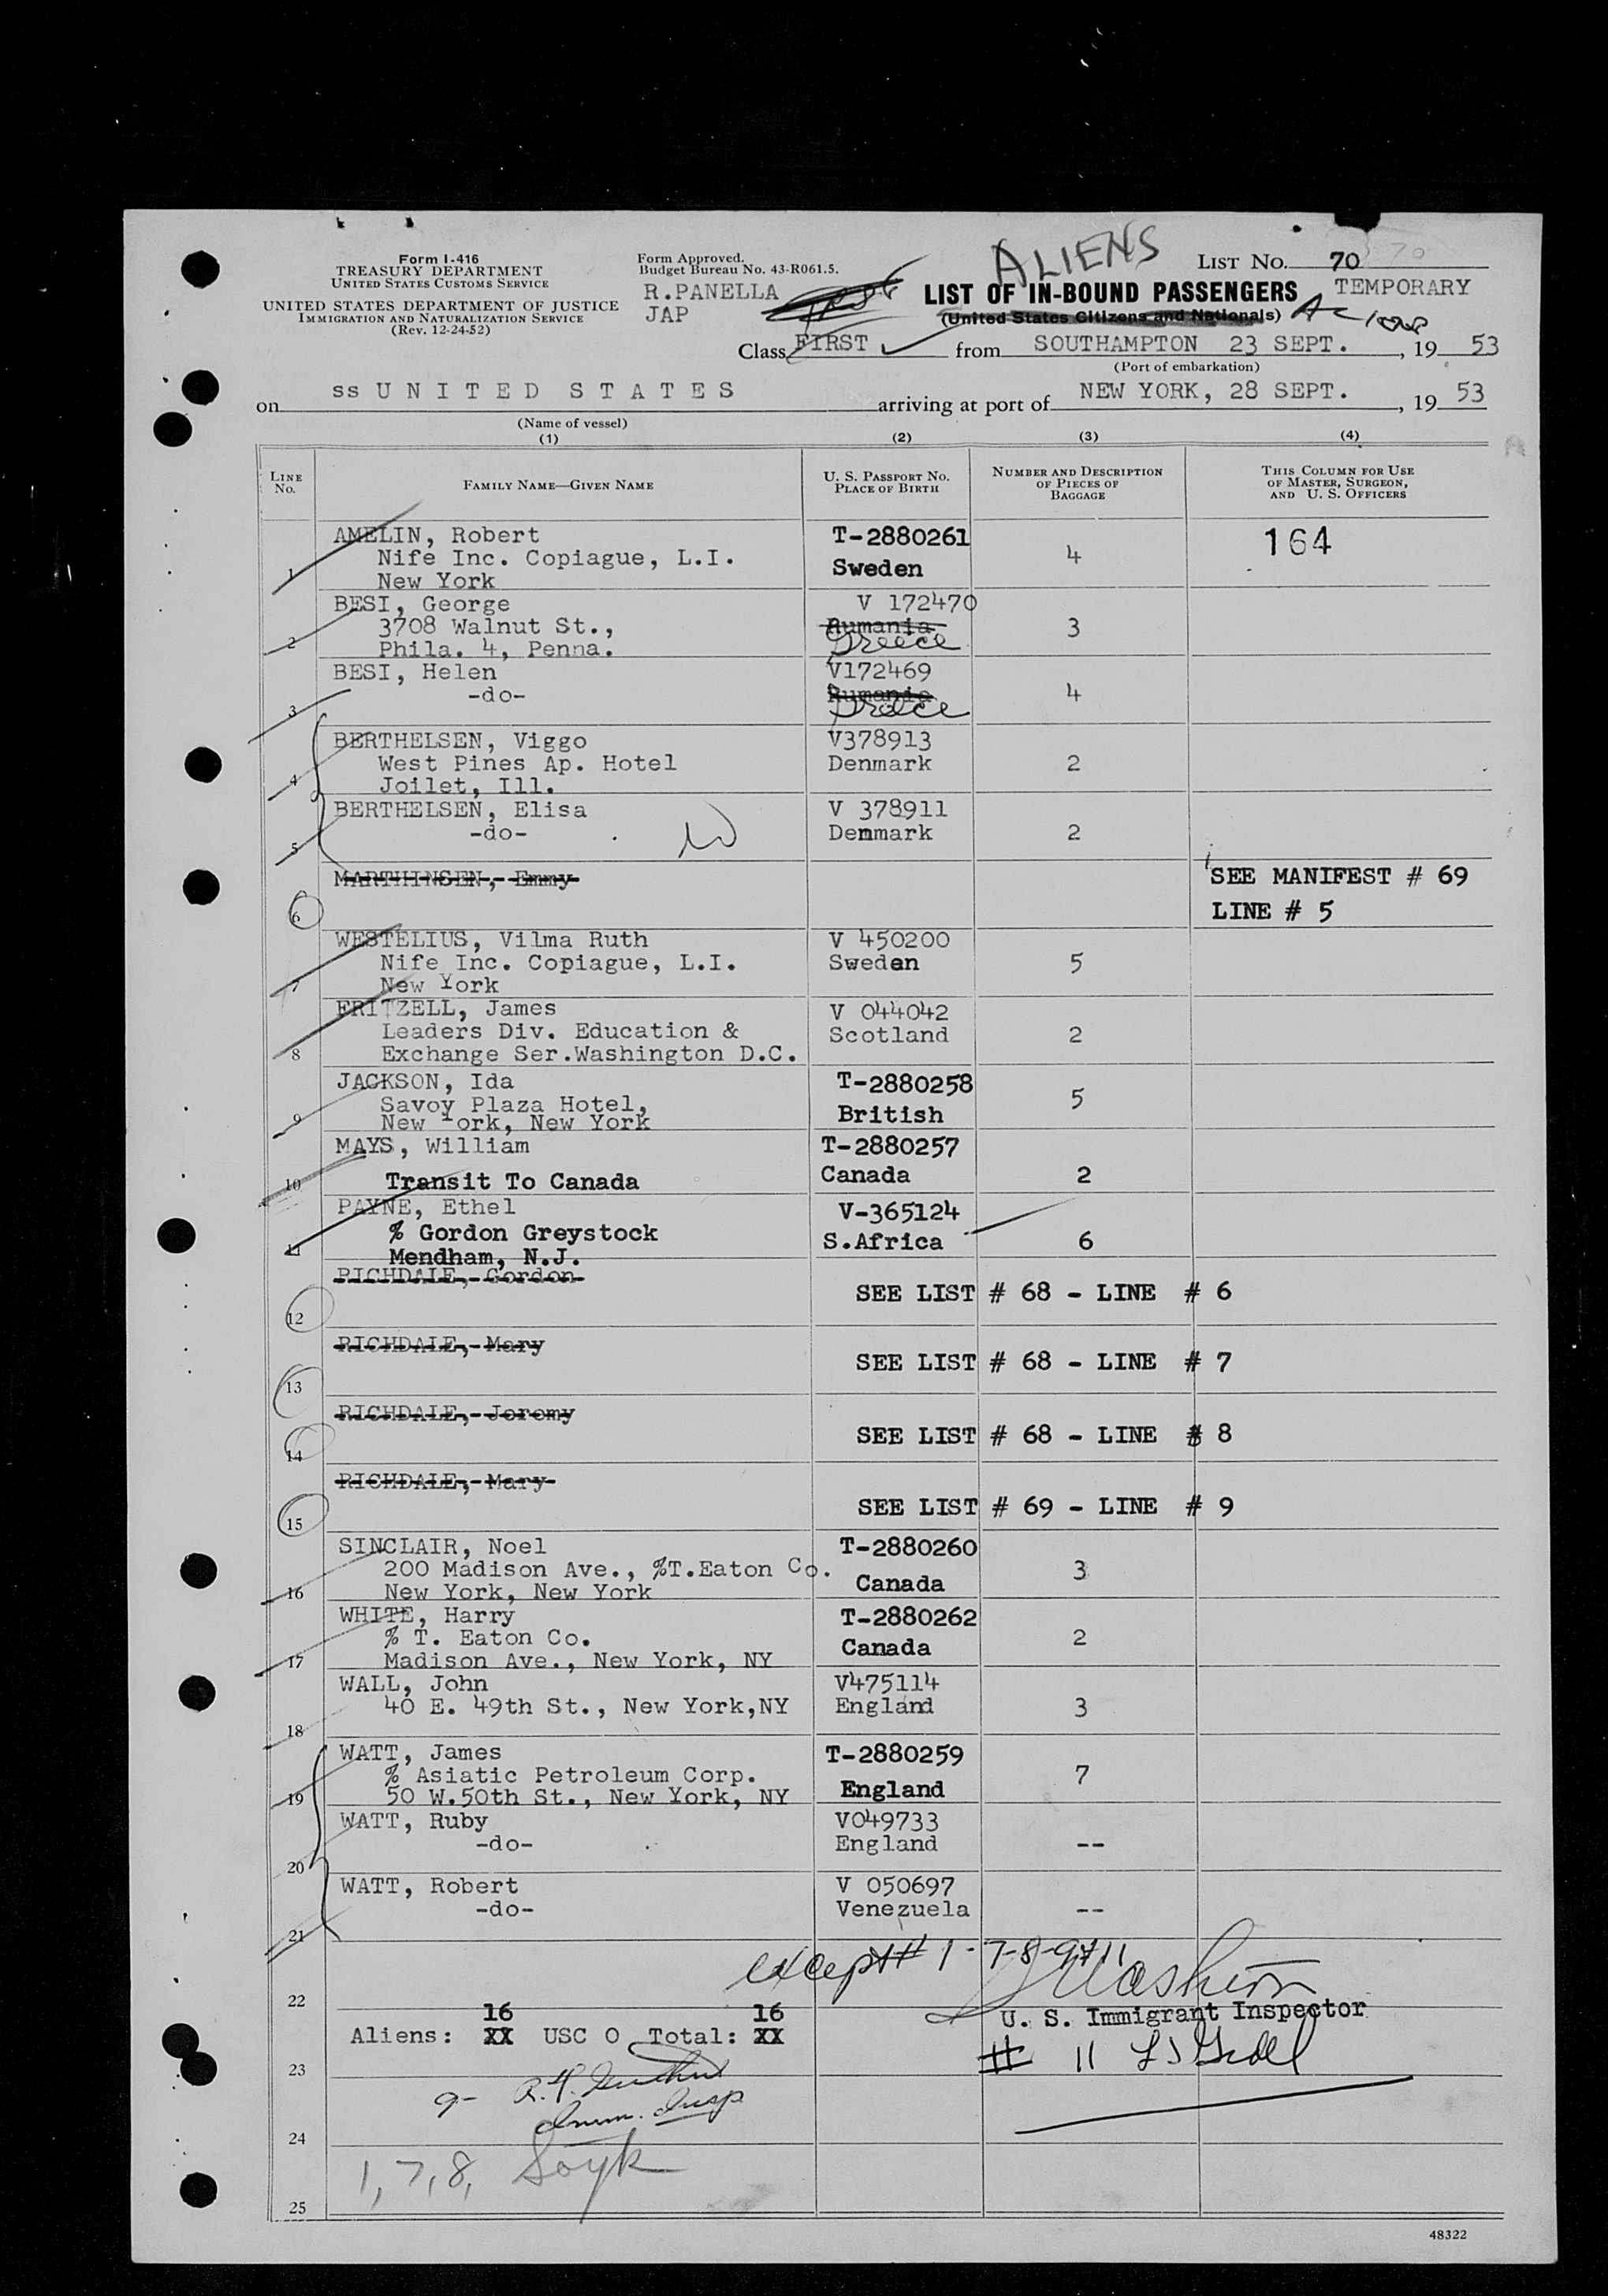 Form I-416
TREASURY DEPARTMENT
UNITED STATES CUSTOMS SERVICE
UNITED STATES DEPARTMENT OF JUSTICE
IMMIGRATION AND NATURALIZATION SERVICE
(Rev. 12-24-52)
Form Approved.
Budget Bureau No. 43-R061.5.
R.PANELLA
JAP
ALIENS
LIST NO. 70
TEMPORARY
LIST OF IN-BOUND PASSENGERS
(United States Citizens and Nationals)
Class FIRST from SOUTHAMPTON 23 SEPT., 19 53
(Port of embarkation)
on ss UNITED STATES arriving at port of NEW YORK, 28 SEPT., 19 53
(Name of vessel)
(1) (2) (3) (4)
LINE NO. FAMILY NAME—GIVEN NAME U. S. PASSPORT NO. PLACE OF BIRTH NUMBER AND DESCRIPTION OF PIECES OF BAGGAGE THIS COLUMN FOR USE OF MASTER, SURGEON, AND U. S. OFFICERS
AMELIN, Robert T-2880261 164
Nife Inc. Copiague, L.I. Sweden 4
1 New York
BESI, George V 172470
3708 Walnut St., Rumania 3
2 Phila. 4, Penna. Greece
BESI, Helen V172469
-do- Rumania 4
3 Greece
BERTHELSEN, Viggo V378913
West Pines Ap. Hotel Denmark 2
4 Joilet, Ill.
BERTHELSEN, Elisa V 378911
-do- Denmark 2
5
MARTHINSEN, Emmy SEE MANIFEST # 69
6 LINE # 5
WESTELIUS, Vilma Ruth V 450200
Nife Inc. Copiague, L.I. Sweden 5
7 New York
FRITZELL, James V 044042
Leaders Div. Education & Scotland 2
8 Exchange Ser.Washington D.C.
JACKSON, Ida T-2880258
Savoy Plaza Hotel, British 5
9 New York, New York
MAYS, William T-2880257
10 Transit To Canada Canada 2
PAYNE, Ethel V-365124
% Gordon Greystock S.Africa 6
11 Mendham, N.J.
RICHDALE, Gordon
12 SEE LIST # 68 - LINE # 6
RICHDALE, Mary
13 SEE LIST # 68 - LINE # 7
RICHDALE, Jeremy
14 SEE LIST # 68 - LINE # 8
RICHDALE, Mary
15 SEE LIST # 69 - LINE # 9
SINCLAIR, Noel T-2880260
200 Madison Ave., %T.Eaton Co. Canada 3
16 New York, New York
WHITE, Harry T-2880262
% T. Eaton Co. Canada 2
17 Madison Ave., New York, NY
WALL, John V475114
40 E. 49th St., New York,NY England 3
18
WATT, James T-2880259
% Asiatic Petroleum Corp. England 7
19 50 W.50th St., New York, NY
WATT, Ruby V049733
-do- England --
20
WATT, Robert V 050697
-do- Venezuela --
21
except # 1-7-8-9+11
22
U. S. Immigrant Inspector
16 16
Aliens: XX USC 0 Total: XX
# 11
23
9-
Imm. Insp
24
1, 7, 8,
25
48322